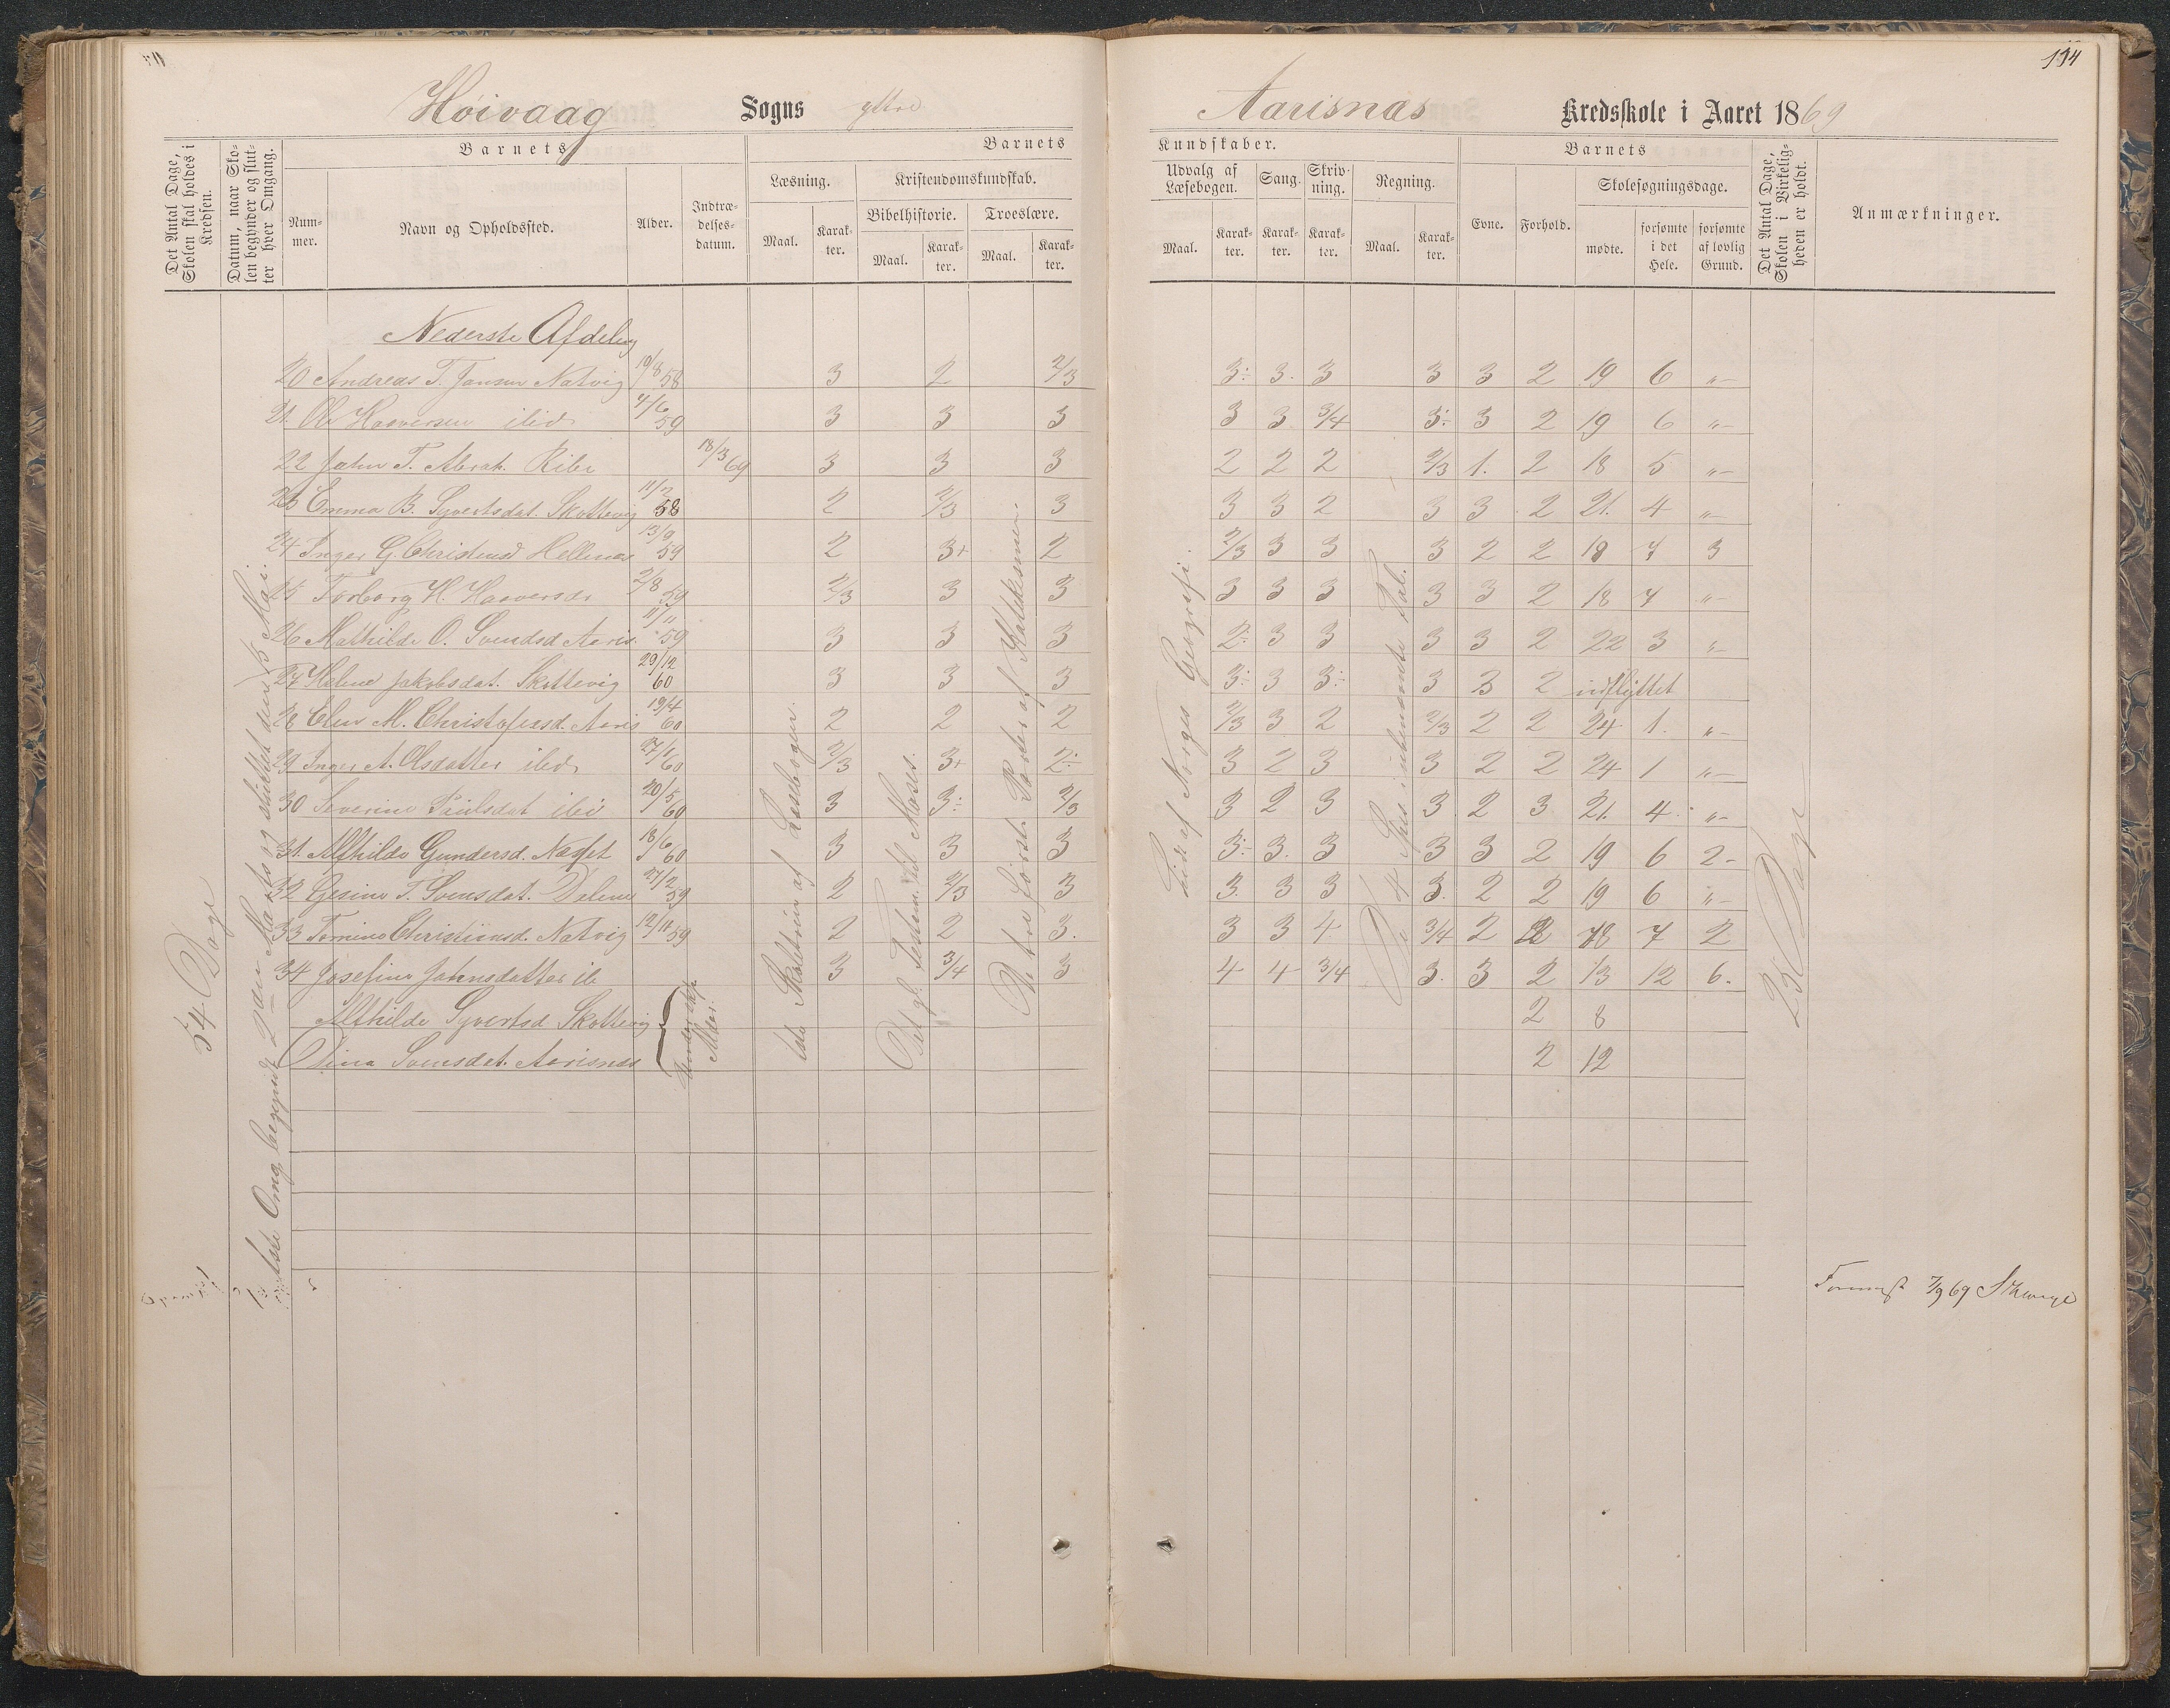 114
Høivaag Sogns ytre Aarisnæs Kredsskole i Aaret 1869
Det Antal Dage, Skolen skal holdes i Kredsen.
Datum, naar Skolen begynder og slutter hver Omgang.
Barnets
Nummer.
Navn og Opholdssted.
Alder.
Indtrædelsesdatum.
Barnets Kundskaber.
Læsning.
Maal.
Karakter.
Kristendomskundskab.
Bibelhistorie.
Maal.
Karakter.
Troeslære.
Maal.
Karakter.
Udvalg af Læsebogen.
Maal.
Karakter.
Sang.
Karakter.
Skrivning.
Karakter.
Regning.
Maal.
Karakter.
Barnets
Evne.
Forhold.
Skolesøgningsdage.
mødte.
forsømte i det Hele.
forsømte af lovlig Grund.
Det Antal Dage, Skolen i Virkeligheden er holdt.
Anmærkninger.
Nederste Afdeling
20 Andreas T. Jensen Natvig 19/8 58 3 2 2/3 3÷ 3. 3 3 3 2 19 6 "-
21. Ole Haaversen ibid 4/6 59 3 3 3 3 3 3/4 3÷ 3 2 19 6 "-
22 John T. Abrah. Ribe 18/3 69 3 3 3 2 2 2 2/3 1. 2 18 5 "-
23 Emma B. Syvertsdat. Skottevig 11/2 58 2 2/3 3 3 3 2 3 3 2 21. 4 "-
24 Inger G. Christensd Hellenes 13/9 59 2 3+ 2 2/3 3 3 3 2 2 18 7 3
25 Torborg H. Haaversdr 2/8 59 2/3 3 3 3 3 3 3 3 2 18 7 "-
26 Mathilde O. Svendsd Aaris 11/11 59 3 3 3 2÷ 3 3 3 3 2 22 3 "-
27 Helene Jakobsdat. Skottevig 29/12 60 3 3 3 3÷ 3 3÷ 3 3 2 udflyttet
28 Elen M. Christofersd. Aaris 19/4 60 2 2 2 2/3 3 2 2/3 2 2 24 1. "-
29 Inger A. Olsdatter ibid 27/1 60 2/3 3+ 2÷ 3 2 3 3 2 2 24 1 "-
30 Severine Paulsdat ibi 20/5 60 3 3÷ 2/3 3 2 3 3 2 3 21. 4 "-
31. Alfhilde Gundersd. Næsset 18/6 60 3 3 3 3÷ 3. 3 3 3 2 19 6 2-
32 Gesine T. Svensdat. Dalene 27/2 59 2 2/3 3 3. 3 3 3. 2 2 19 6 "-
33 Tomine Christiansd. Natvig 12/11 59 2 2 3. 3 3 4 3/4 2 2 18 7 2
34 Josefine Johnsdatter ib 3 3/4 3 4 4 3/4 3. 3 2 13 12 6.
Alfhilde Syvertsd Skottevig 2 8
Olina Svensdat. Aarisnæs 2 12
Under Skp. Alder
54 Dage
1ste Omg. begyndt 2den Marts og sluttet den 15 Mai.
1ste Skoletrin af Læsebogen.
Det gl. Testem. til Moses.
De tre første Parter af Katekismen.
Lidt af Norges Geografi.
De 4 Spec. i ubenævnte Tal.
25 Dage
7/9 69